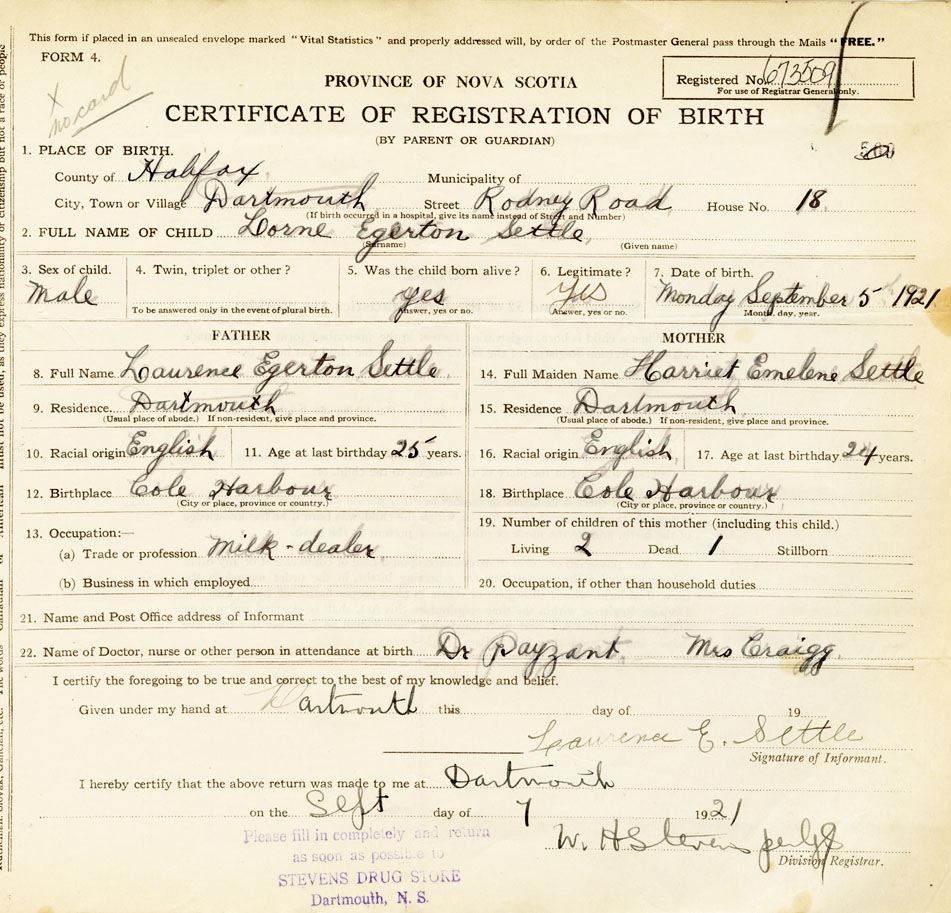 This form if placed in an unsealed envelope marked "Vital Statistics" and properly addressed will, by order of the Postmaster General pass through the Mails "FREE."
FORM 4.
Registered No. 673509
For use of Registrar General only.
x no card
PROVINCE OF NOVA SCOTIA
CERTIFICATE OF REGISTRATION OF BIRTH
(BY PARENT OR GUARDIAN)
1. PLACE OF BIRTH.
County of Halifax Municipality of
City, Town or Village Dartmouth Street Rodney Road House No. 18
(If birth occurred in a hospital, give its name instead of Street and Number)
2. FULL NAME OF CHILD Lorne Egerton Settle
(Surname) (Given name)
3. Sex of child. 4. Twin, triplet or other? 5. Was the child born alive? 6. Legitimate? 7. Date of birth.
Male yes yes Monday September 5 1921
To be answered only in the event of plural birth. Answer, yes or no. Answer, yes or no. Month, day, year.
FATHER MOTHER
8. Full Name Laurence Egerton Settle 14. Full Maiden Name Harriet Emelene Settle
9. Residence Dartmouth 15. Residence Dartmouth
(Usual place of abode.) If non-resident, give place and province. (Usual place of abode.) If non-resident, give place and province.
10. Racial origin English 11. Age at last birthday 25 years. 16. Racial origin English 17. Age at last birthday 24 years.
12. Birthplace Cole Harbour 18. Birthplace Cole Harbour
(City or place, province or country.) (City or place, province or country.)
13. Occupation:— 19. Number of children of this mother (including this child.)
(a) Trade or profession Milk-dealer Living 2 Dead 1 Stillborn
(b) Business in which employed 20. Occupation, if other than household duties
21. Name and Post Office address of Informant
22. Name of Doctor, nurse or other person in attendance at birth Dr Payzant Mrs Craigg
I certify the foregoing to be true and correct to the best of my knowledge and belief.
Given under my hand at Dartmouth this day of 19
Laurence E. Settle
Signature of Informant.
I hereby certify that the above return was made to me at Dartmouth
on the Sept day of 7 1921
W. H Stevens per
Division Registrar.
Please fill in completely and return
as soon as possible to
STEVENS DRUG STORE
Dartmouth, N. S.